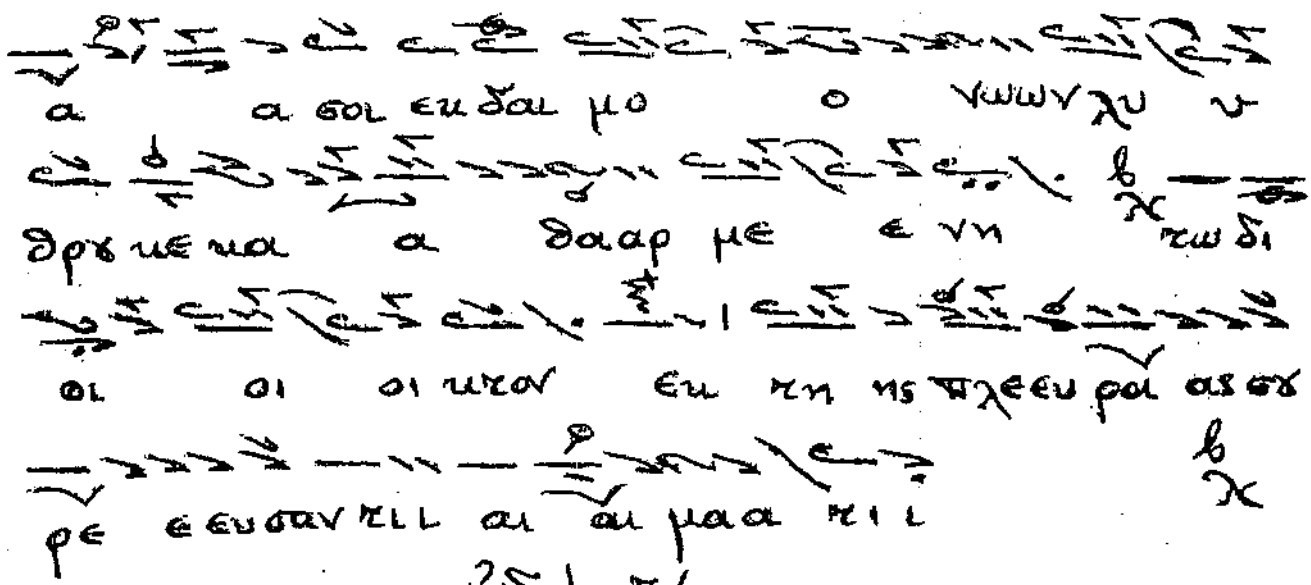 α α σοι εκ δαι μο ο νωων λυ υ
θρȣ κε κα α θααρ με ε νη τω δι
οι οι οι κτον εκ τη ης πλεευ ρα ας σȣ
ρε ε ευσαν τιι αι αι μαα τιι